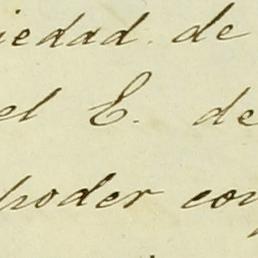 iedad de
el E. de
poder con